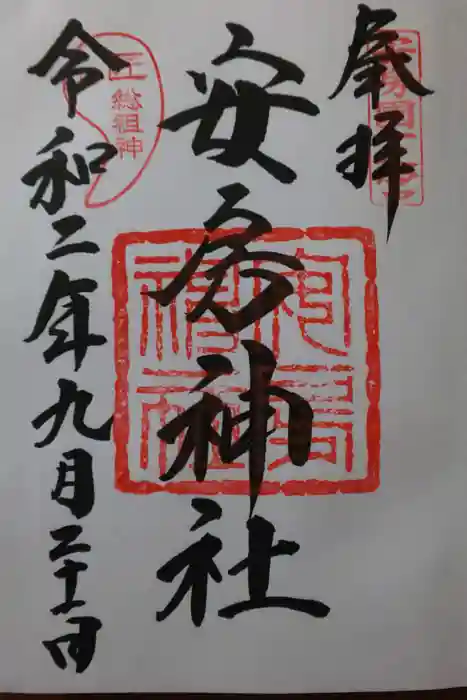 奉拝
安房国一之宮
安房神社
安房神社
令和二年九月二十一日
匠
総祖神